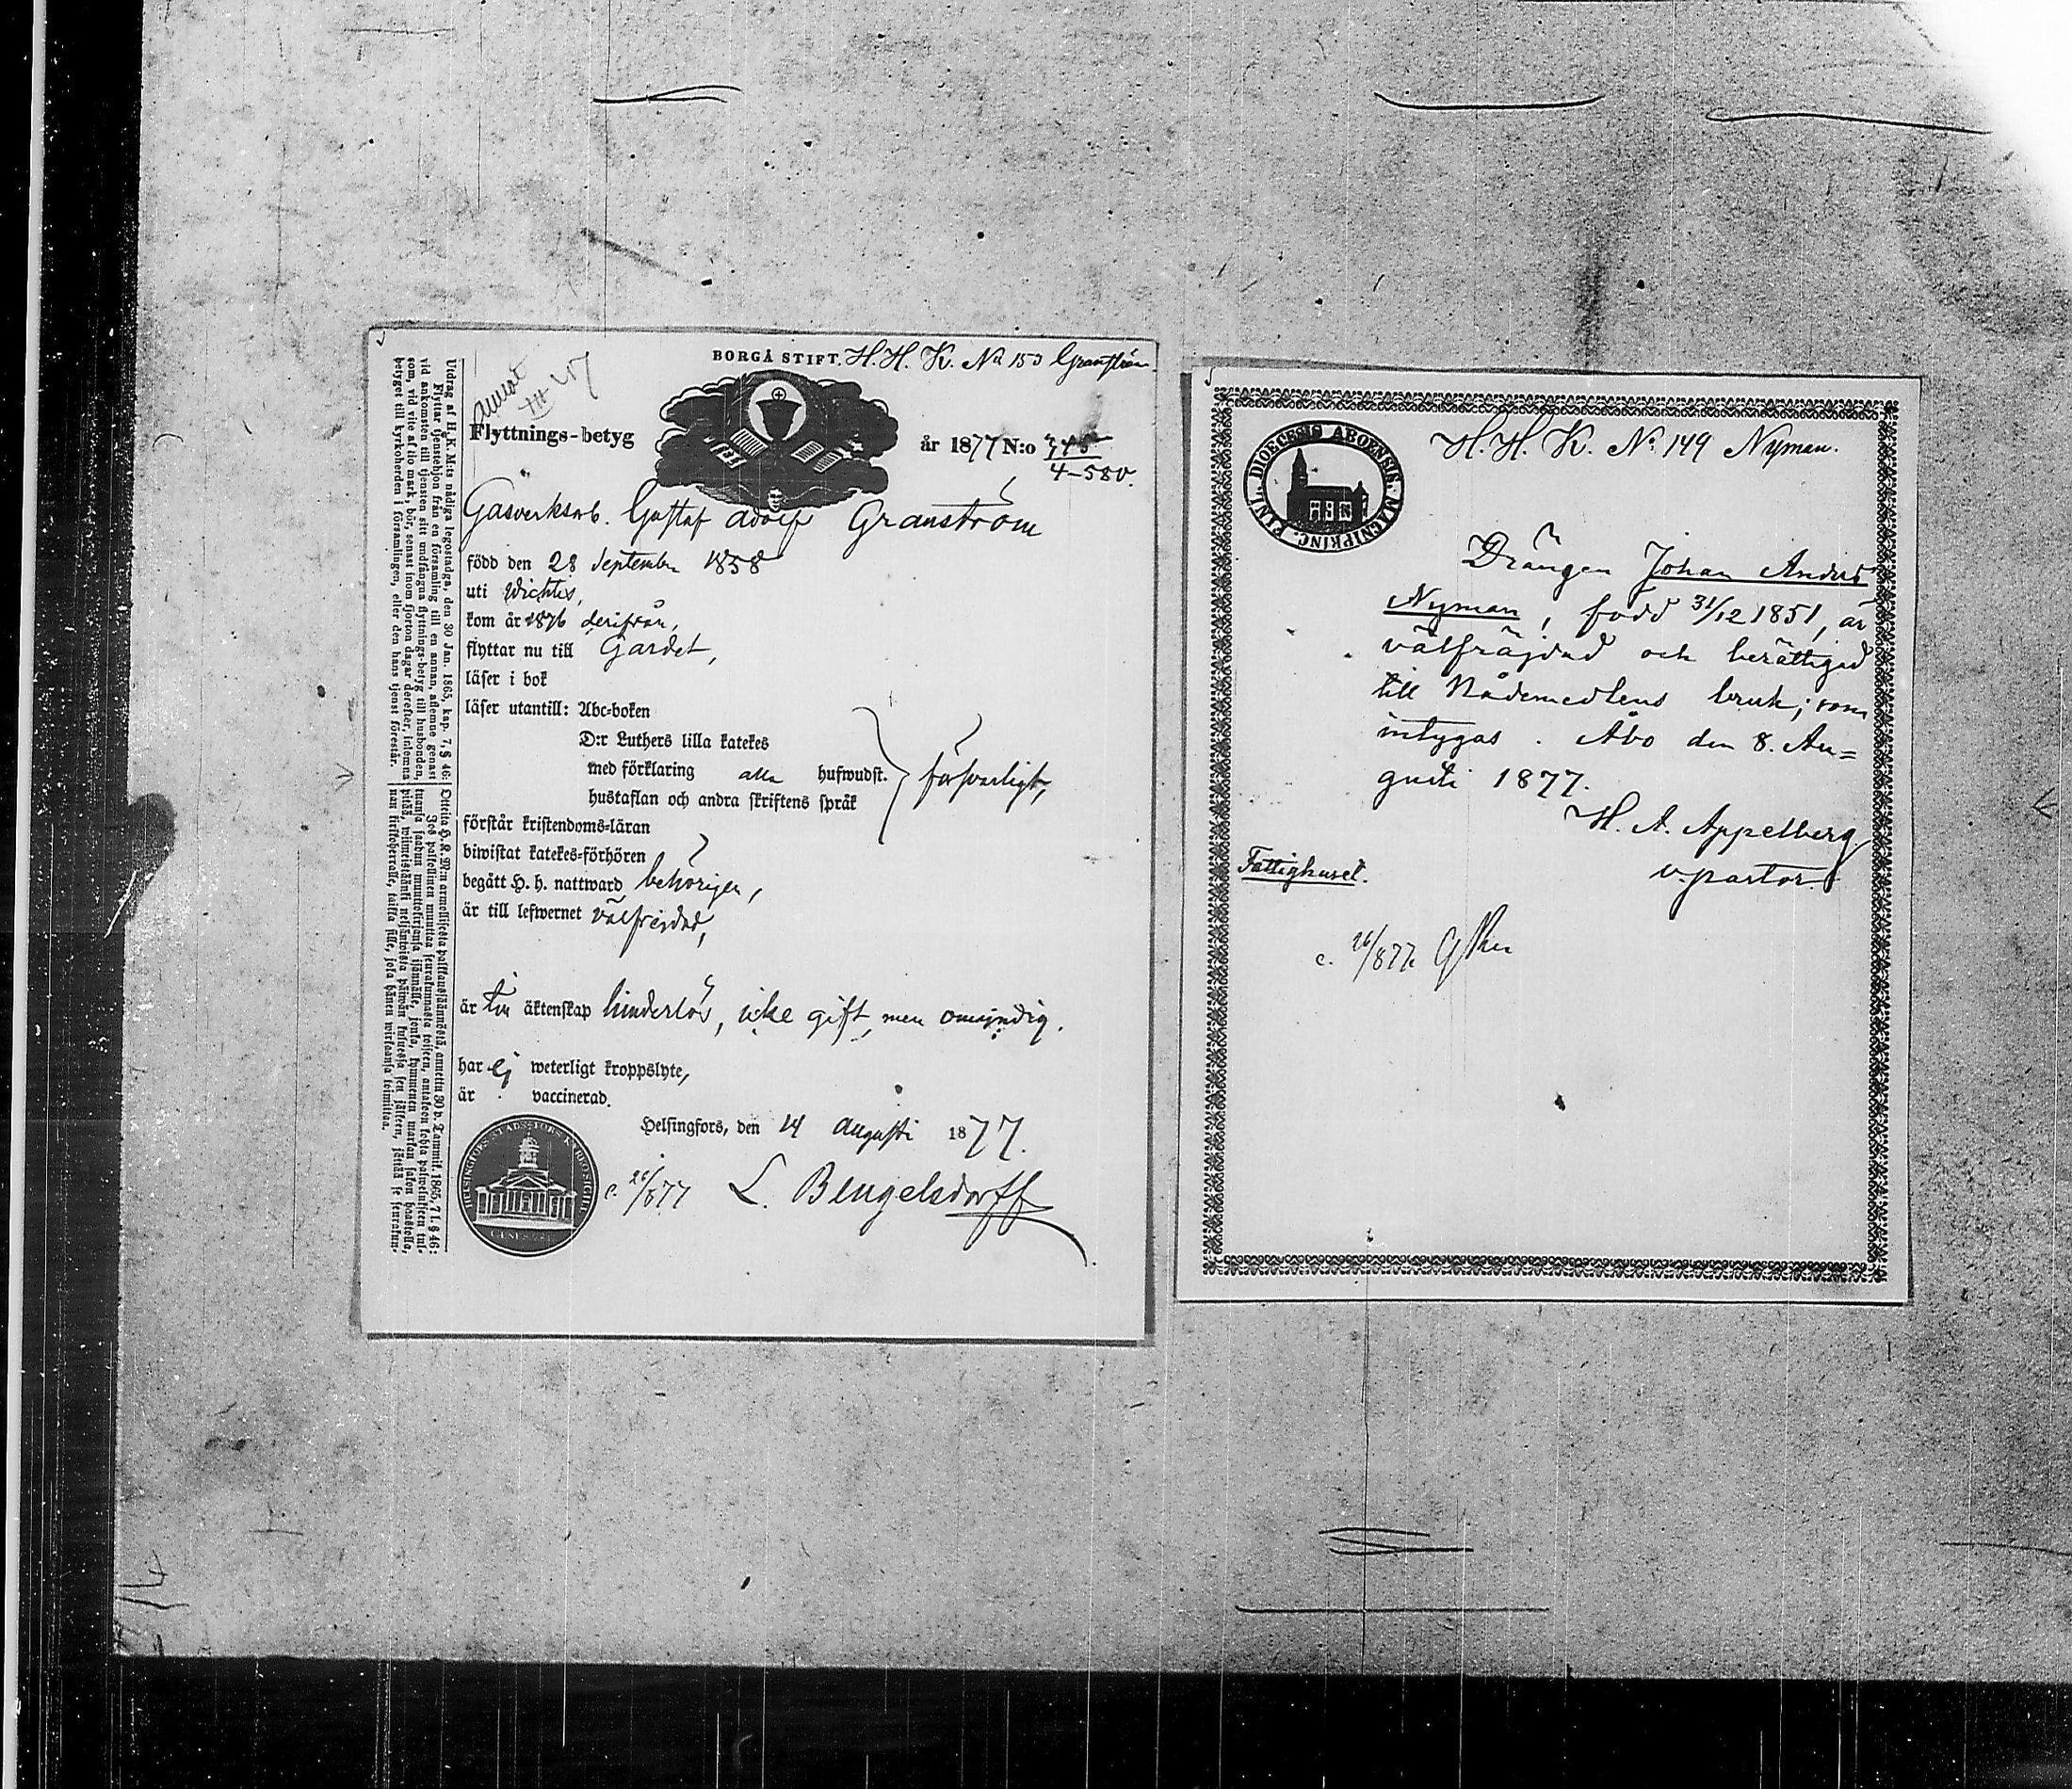 BORGÅ STIFT. H. H. K. No 153 Granström
Flyttnings-betyg
år 1877 N:o
4-580.
Gasverksarb. Gustaf Adolf Granström
född den 28 September 1858
uti Wichtis,
kom år 1876 derifrån,
flyttar nu till Gardet,
läser i bok
läser utantill: Abc-boken
D:r Luthers lilla katekes
med förklaring alla hufwudst.
hustaflan och andra skriftens språk
försvarligt,
förstår kristendoms-läran
biwistat katekes-förhören
begått H. H. nattward behörigen,
är till lefwernet välfrejdad,
är till äktenskap hinderlös, icke gift, men omyndig.
har ej weterligt kroppslyte,
är vaccinerad.
Helsingfors, den 14 Augusti 1877.
c. 26/8 77 L. Bengelsdorff
Utdrag af H. K. M:ts nådiga legostadga, den 30 Jan. 1865, kap. 7, § 46:
Flyttar tjenstehjon från en församling till en annan, aflemne genast
vid ankomsten till tjensten sitt undfångna flyttnings-betyg till husbonden,
som, vid vite af tio mark, bör, senast inom fjorton dagar derefter, inlemna
betyget till kyrkoherden i församlingen, eller den hans tjenst förestår.
FINL. DIOECESIS ABOENSIS. MAGNIPRINC.
H. H. K. No 149 Nyman.
Drängen Johan Anders
Nyman, född 31/12 1851, är
välfräjdad och berättigad
till Nådemedlens bruk; som
intygas. Åbo den 8. Au=
gusti 1877.
H. A. Appelberg
v. pastor.
Fattighuset.
c. 26/8 77